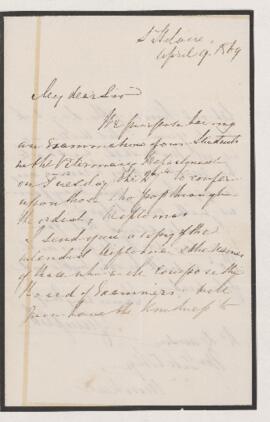 My dear Sir
We purpose having
an Examination of our Students
in the Veterinary Department
on Tuesday the to confer
upon those who pass through
the ordeal, diplomas
I send you a copy of the
intended diploma & the names
of those who will compose the
Board of Examiners. Will
you have the kindness to